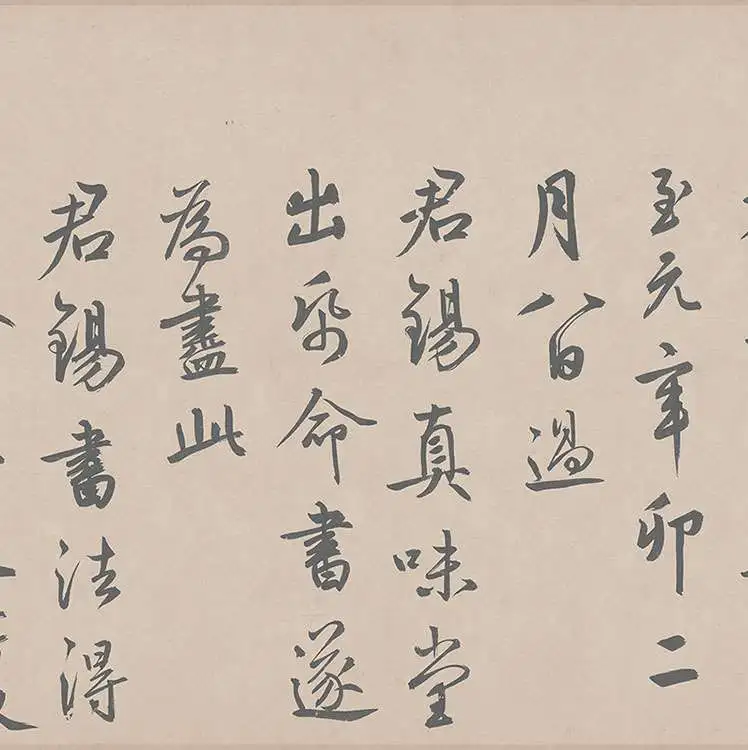 至元辛卯二
月八日過
君錫真味堂
出帋命書遂
為盡此
君錫書法得